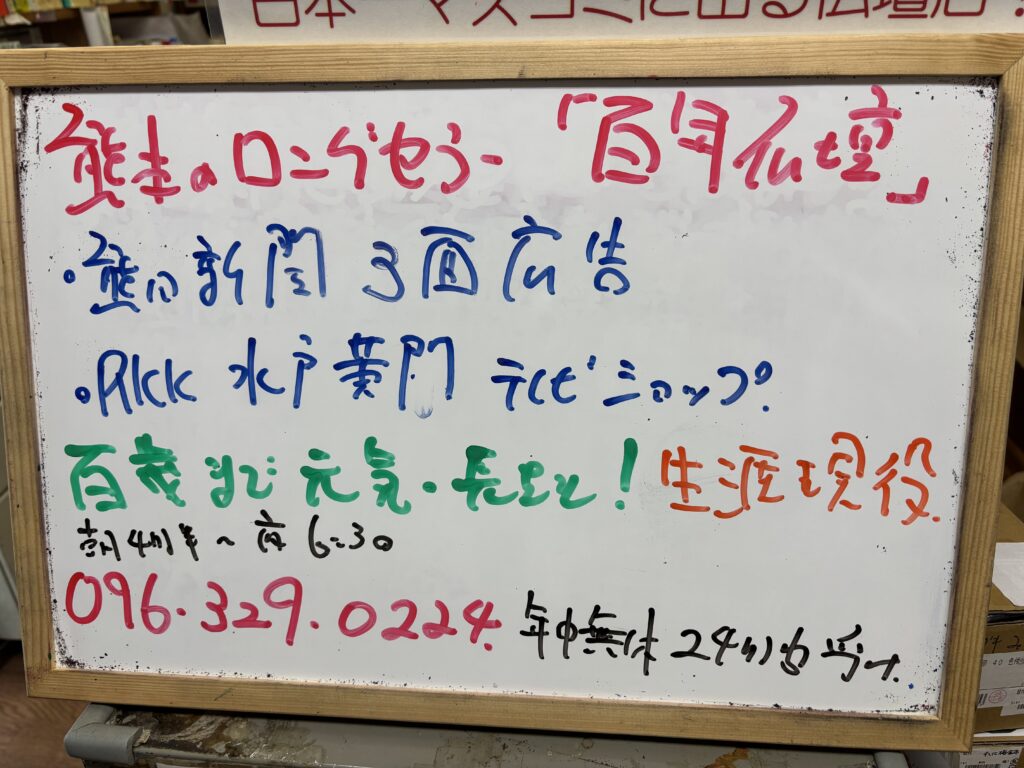 日本一マスコミに出る仏壇店!
熊本のロングセラー「百年仏壇」
・熊日新聞 3面広告
・RKK 水戸黄門 テレビショップ。
百歳まで元気・長生き! 生涯現役.
朝4時半～夜6:30
096.329.0224. 年中無休 24時間受付.